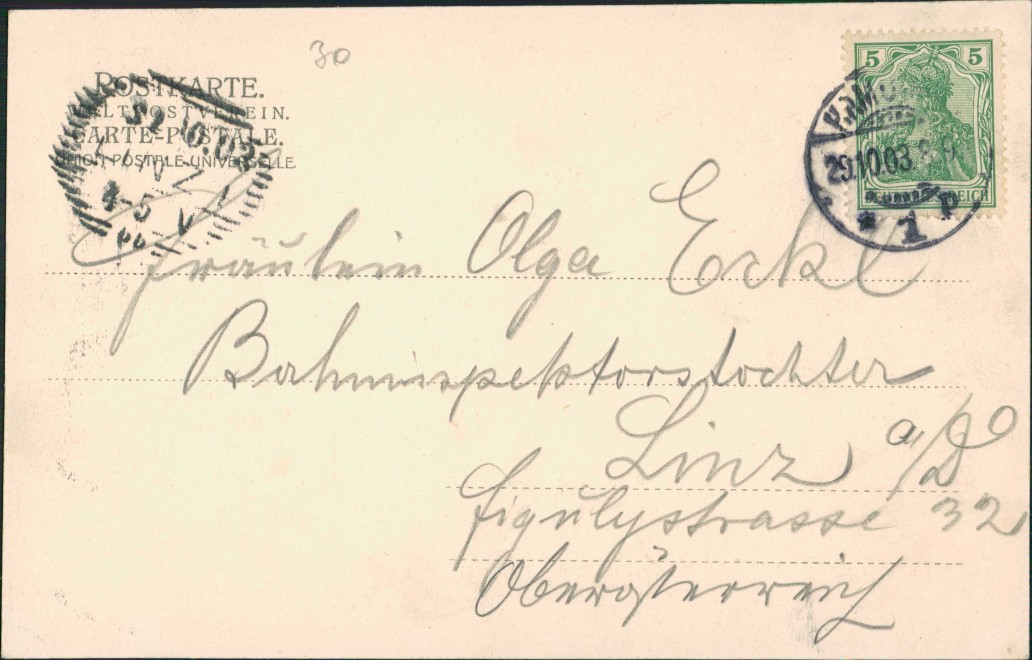 30
POSTKARTE.
WELTPOSTVEREIN.
CARTE-POSTALE.
UNION POSTALE UNIVERSELLE.
LINZ
4-5 V
5 5
DEUTSCHES REICH
29.10.03
* 1 P
Fräulein Olga Eckl
Bahninspektorstochter
Linz a/D
Figulystrasse 32
Oberösterreich